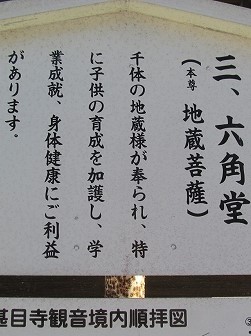 三、六角堂
（本尊 地蔵菩薩）
千体の地蔵様が奉られ、特
に子供の育成を加護し、学
業成就、身体健康にご利益
があります。
甚目寺観音境内順拝図